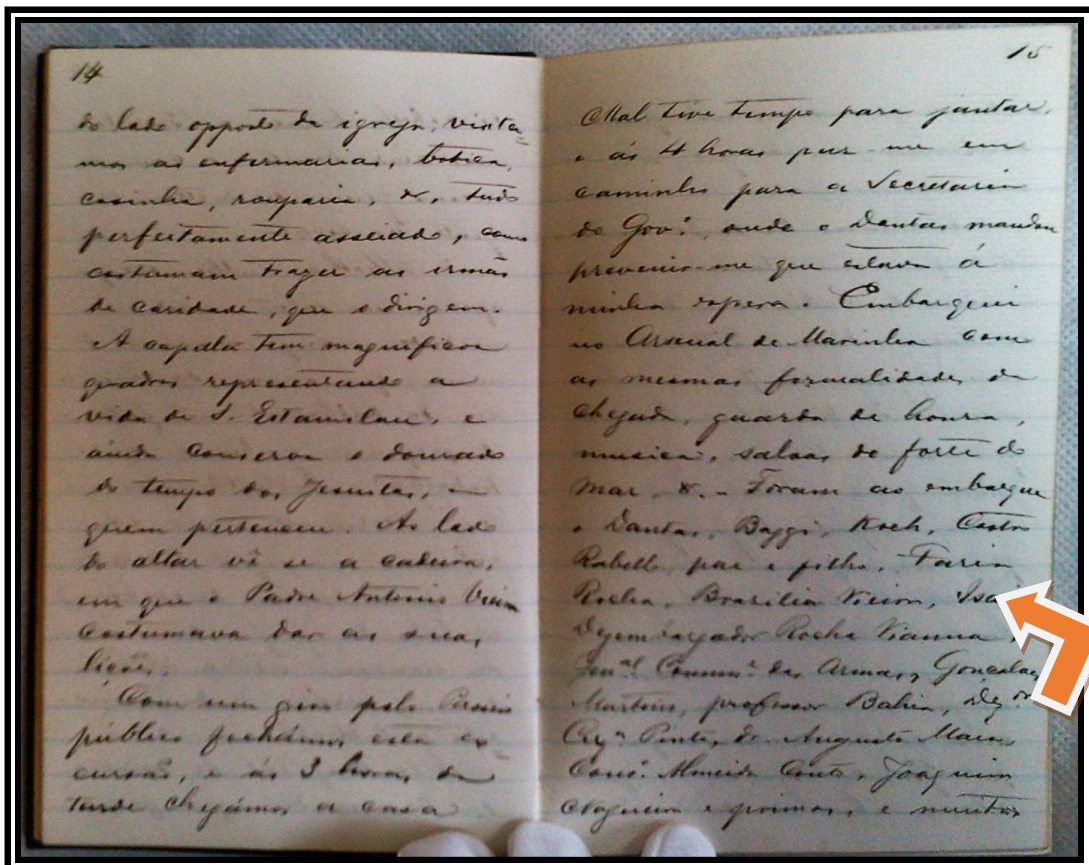 14
do lado opposto da igreja; visita=
mos as enfermarias, botica,
cosinha, rouparia, &, tudo
perfeitamente asseiado, como
costumam trazer as irmãs
de caridade, que o dirigem.
A capella tem magnificos
quadros representando a
vida de S. Estanislau, e
ainda conserva o dourado
do tempo dos Jesuitas, a
quem pertenceu. Ao lado
do altar vê se a cadeira,
em que o Padre Antonio Vieira
costumava dar as suas
lições.
Com um giro pelo Passeio
público fechámos esta ex=
cursão, e ás 3 horas da
tarde chegámos a casa
15
Mal tive tempo para jantar,
e ás 4 horas puz-me em
caminho para a Secretaria
do Gov.º, onde o Dantas mandou
prevenir-me que estava á
minha espera. Embarquei
no Arsenal de Marinha com
as mesmas formalidades da
chegada, guarda de honra,
musica, salvas do forte do
mar, &. - Foram ao embarque
o Dantas, Baggi, Koch, Castro
Rabello, pae e filho, Faria
Rocha, Brazilio Vieira,
Dezembargador Rocha Vianna,
Gen.al Comm.e das Armas, Gonçalves
Martins, professor Bahia,
Pinto, dr. Augusto Maia,
Cons.º Almeida Couto, Joaquim
Nogueira e primos, e muitos